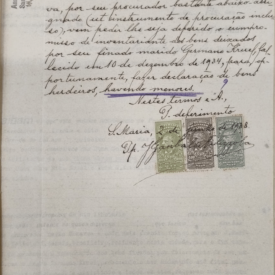 va, por seu procurador bastante abaixo assi-
gnado (ut instrumento de procuração inclu-
so), vem pedir lhe seja deferido o compro-
misso de inventariante dos bens deixados
por seu finado marido Germano fal-
lecido em 10 de dezembro de 1934, para, op-
portunamente, fazer declaração de bens
herdeiros, havendo menores.
Nestes termos e A.,
P. deferimento
S. Maria, de de 193
Pp.